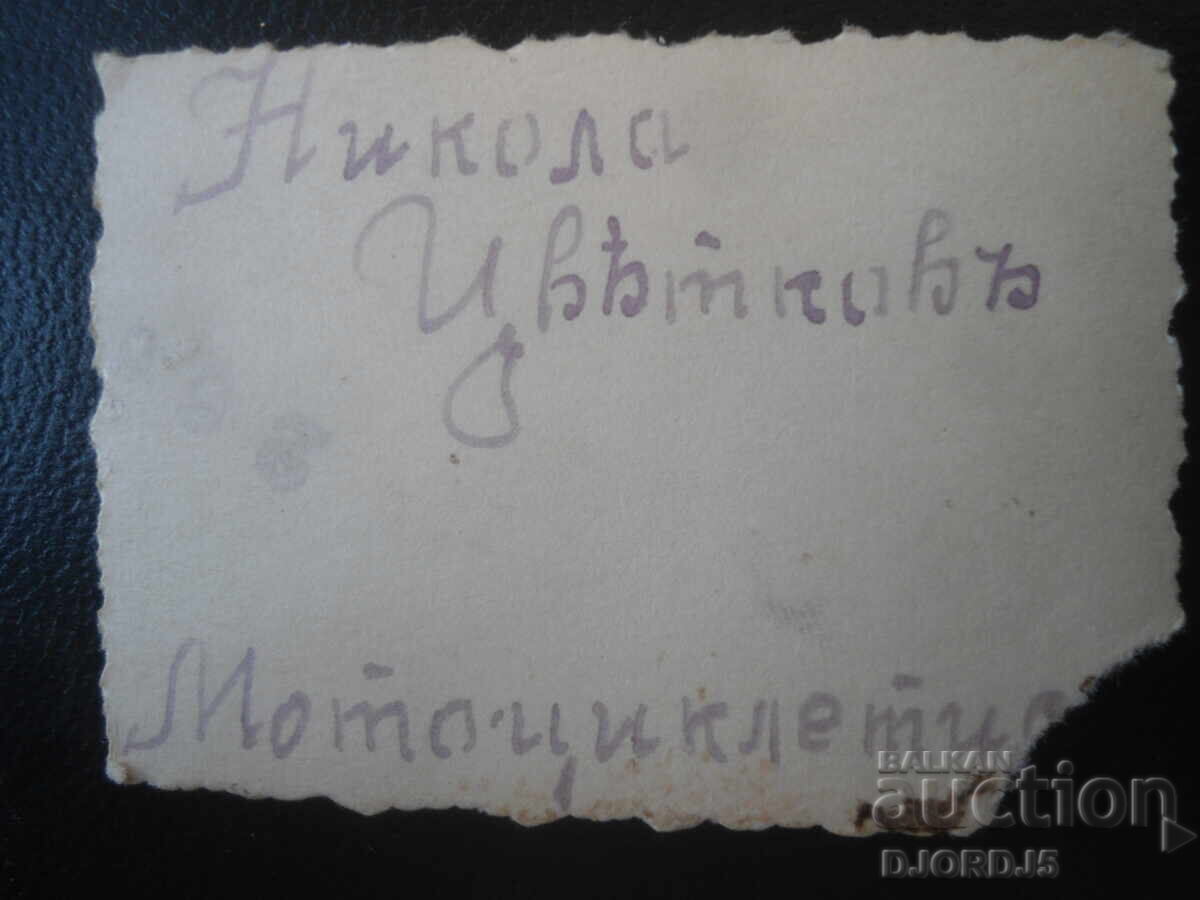 Никола
Цвѣтковъ
Мото-циклетис
BALKAN
auction
DJORDJ5